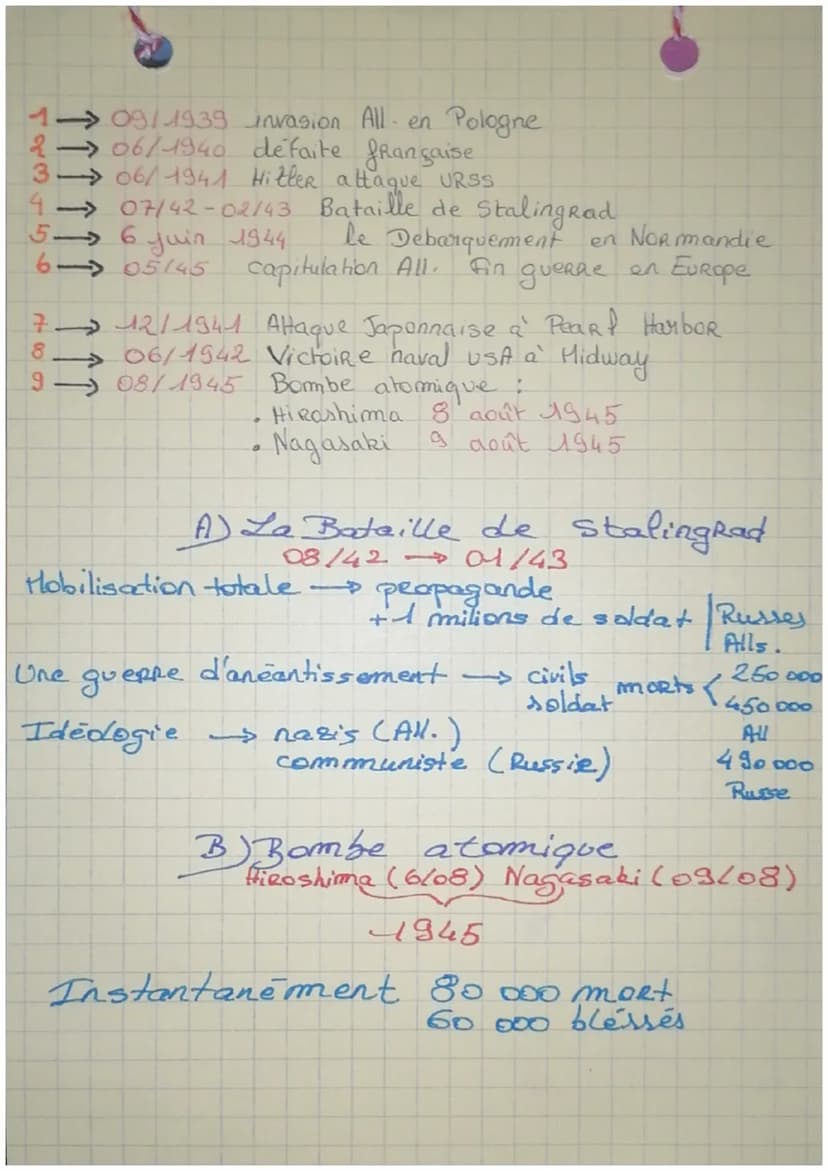 1 → 09/1939 invasion All. en Pologne
2 → 06/1940 défaite française
3 → 06/1941 Hitler attaque URSS
4 → 07/42-02/43 Bataille de Stalingrad
5 → 6 juin 1944 le Debarquement en Normandie
6 → 05/45 capitulation All. Fin guerre en Europe
7 → 12/1941 Attaque Japonnaise à Pearl Harbor
8 → 06/1942 Victoire naval USA à Midway
9 → 08/1945 Bombe atomique :
• Hiroshima 8 août 1945
• Nagasaki 9 août 1945
A) La Bataille de Stalingrad
08/42 → 01/43
Mobilisation totale → propagande
+1 milions de soldat | Russes
Alls.
Une guerre d'anéantissement → civils morts < 250 000
soldat 450 000
All
Idéologie → nazis (All.)
communiste (Russie) 490 000
Russe
B) Bombe atomique
Hiroshima (6/08) Nagasaki (09/08)
1945
Instantanément 80 000 mort
60 000 bléssés